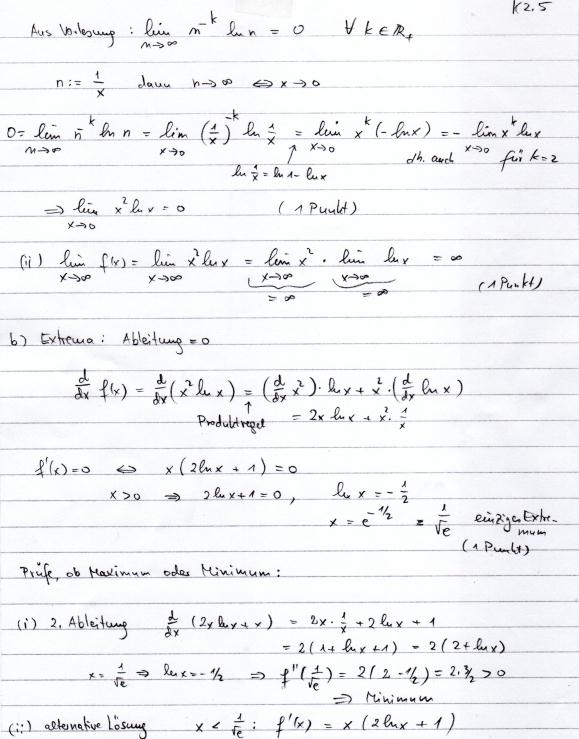 K2.5
Aus Vorlesung : lim n→∞ n^-k ln n = 0 ∀ k ∈ ℝ₊
n := 1/x dann n→∞ ⇔ x→0
0 = lim n→∞ n^-k ln n = lim x→0 (1/x)^-k ln 1/x = lim x→0 x^k (-ln x) = - lim x→0 x^k ln x
ln 1/x = ln 1 - ln x d.h. auch für k=2
⇒ lim x→0 x² ln x = 0 (1 Punkt)
(ii) lim x→∞ f(x) = lim x→∞ x² ln x = lim x→∞ x² · lim x→∞ ln x = ∞
= ∞ = ∞ (1 Punkt)
b) Extrema : Ableitung = 0
d/dx f(x) = d/dx (x² ln x) = (d/dx x²) · ln x + x² · (d/dx ln x)
Produktregel = 2x ln x + x² · 1/x
f'(x) = 0 ⇔ x (2 ln x + 1) = 0
x > 0 ⇒ 2 ln x + 1 = 0 , ln x = - 1/2
x = e^-1/2 = 1/√e einziges Extre-
mum
(1 Punkt)
Prüfe, ob Maximum oder Minimum :
(i) 2. Ableitung d/dx (2x ln x + x) = 2x · 1/x + 2 ln x + 1
= 2 (1 + ln x + 1) = 2 (2 + ln x)
x = 1/√e ⇒ ln x = - 1/2 ⇒ f''(1/√e) = 2 (2 - 1/2) = 2 · 3/2 > 0
⇒ Minimum
(ii) alternative Lösung x < 1/√e : f'(x) = x (2 ln x + 1)